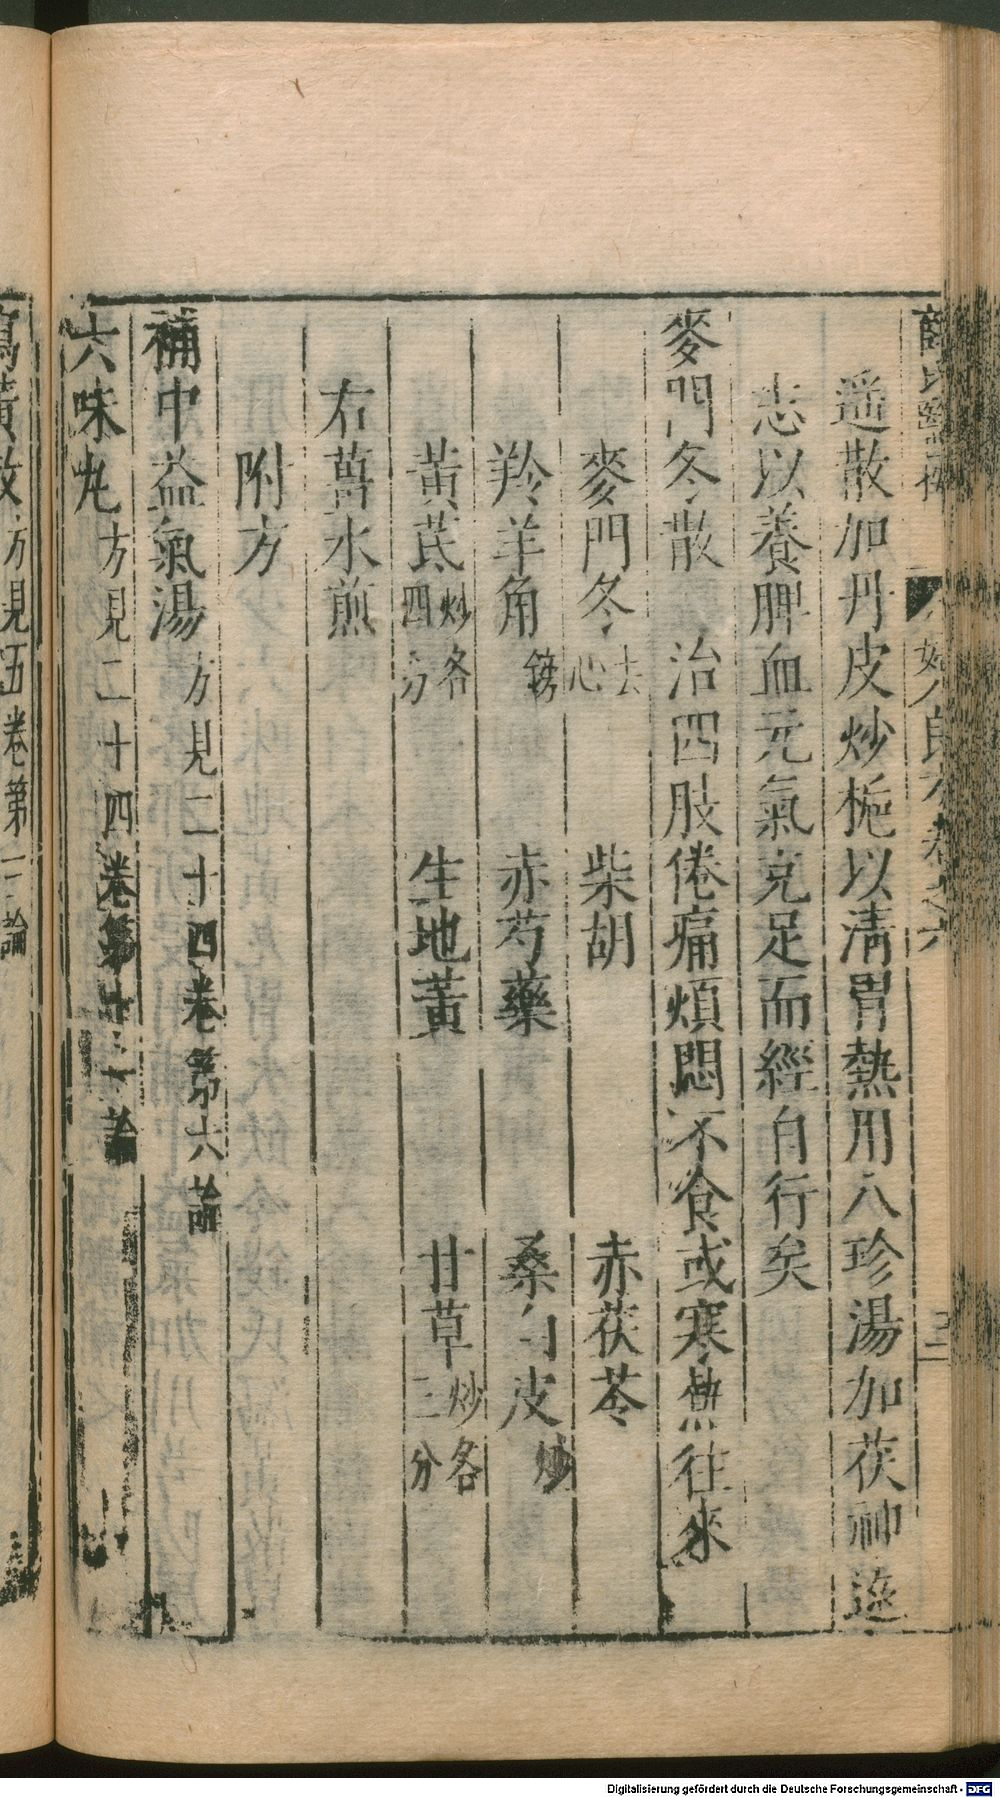 薛氏醫按 婦人良方卷之六
遥散加丹皮炒梔以淸胃熱用八珍湯加茯神遠
志以養脾血元氣充足而經自行矣
麥門冬散 治四肢倦痛煩悶不食或寒熱徃來
麥門冬去心 柴胡 赤茯苓
羚羊角鎊 赤芍藥 桑白皮炒
黃芪炒各四分 生地黃 甘草炒各三分
右薑水煎
附方
補中益氣湯方見二十四卷第六論
六味丸方見二十四卷第論
瀉黃散方見五卷第一論
Digitalisierung gefördert durch die Deutsche Forschungsgemeinschaft - DFG